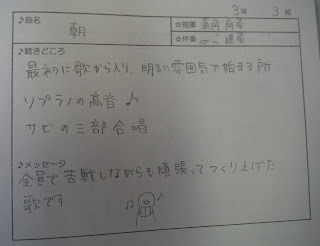 3年 3組
♪曲名
朝
☆指揮
☆伴奏
♪聴きどころ
最初に歌から入り、明るい雰囲気で始まる所
ソプラノの高音♪
サビの三部合唱
♪メッセージ
全員で苦戦しながらも頑張ってつくり上げた
歌です